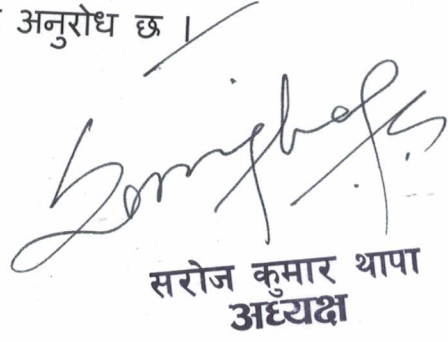 अनुरोध छ ।
सरोज कुमार थापा
अध्यक्ष